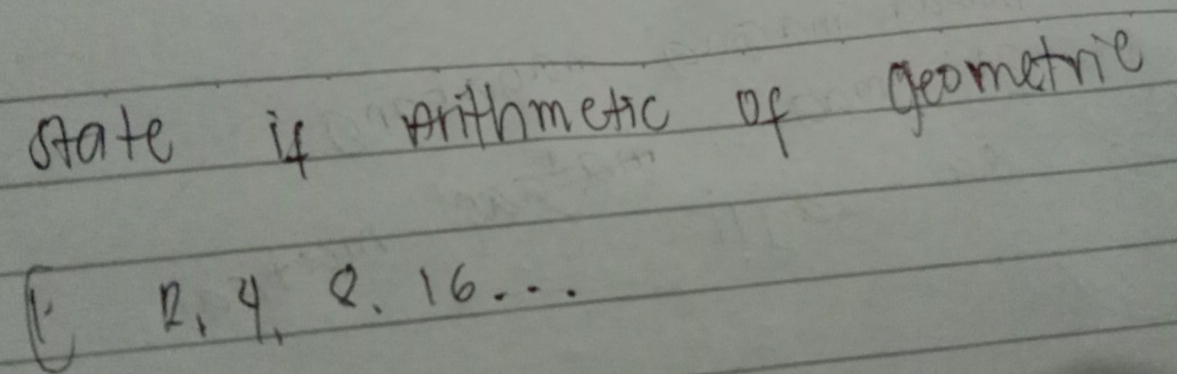 state if arithmetic of geometric
1. 2, 4, 8, 16...